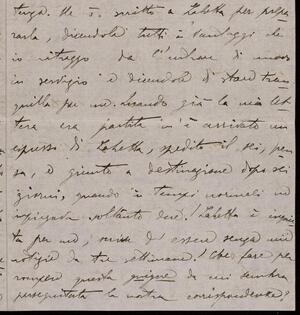 terga. Ho scritto a Zabetta per prepa-
rarla, dicendole tutti i vantaggi che
io ritraggo da l'andare di nuovo
in servizio e dicendole di stare tran-
quilla per me. Quando già la mia let-
tera era partita m'è arrivato un
espresso di Zabetta, spedito il sei, pen-
sa, e giunto a destinazione dopo sei
giorni, quando in tempi normali ne
impiegava soltanto due! Zabetta è inquie-
ta per me, scrive d'essere senza mie
notizie da tre settimane! Che fare per
rompere questa che mi sembra
perseguitata la nostra corrispondenza?